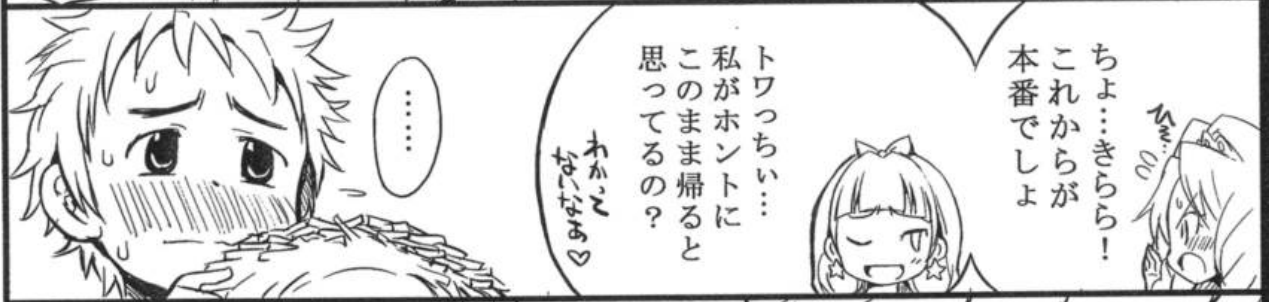 ひそ…
ちょ…きらら!
これからが
本番でしょ
トワっちぃ…
私がホントに
このまま帰ると
思ってるの?
わかって
ないなぁ♡
……